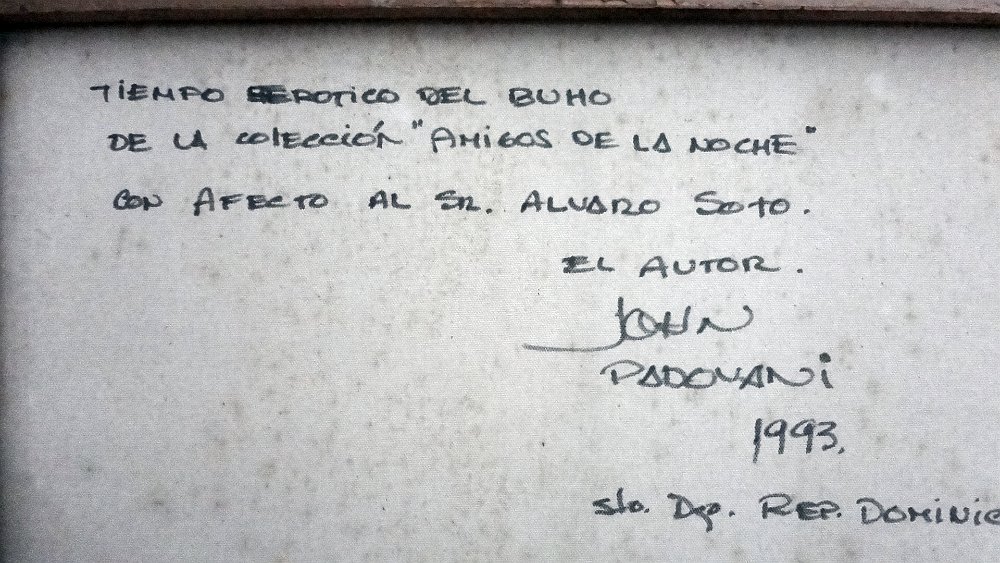 TIEMPO EROTICO DEL BUHO
DE LA COLECCIÓN "AMIGOS DE LA NOCHE"
CON AFECTO AL SR. ALVARO SOTO.
EL AUTOR.
JOHN
PADOVANI
1993.
Sto. Dgo. REP. DOMINIC